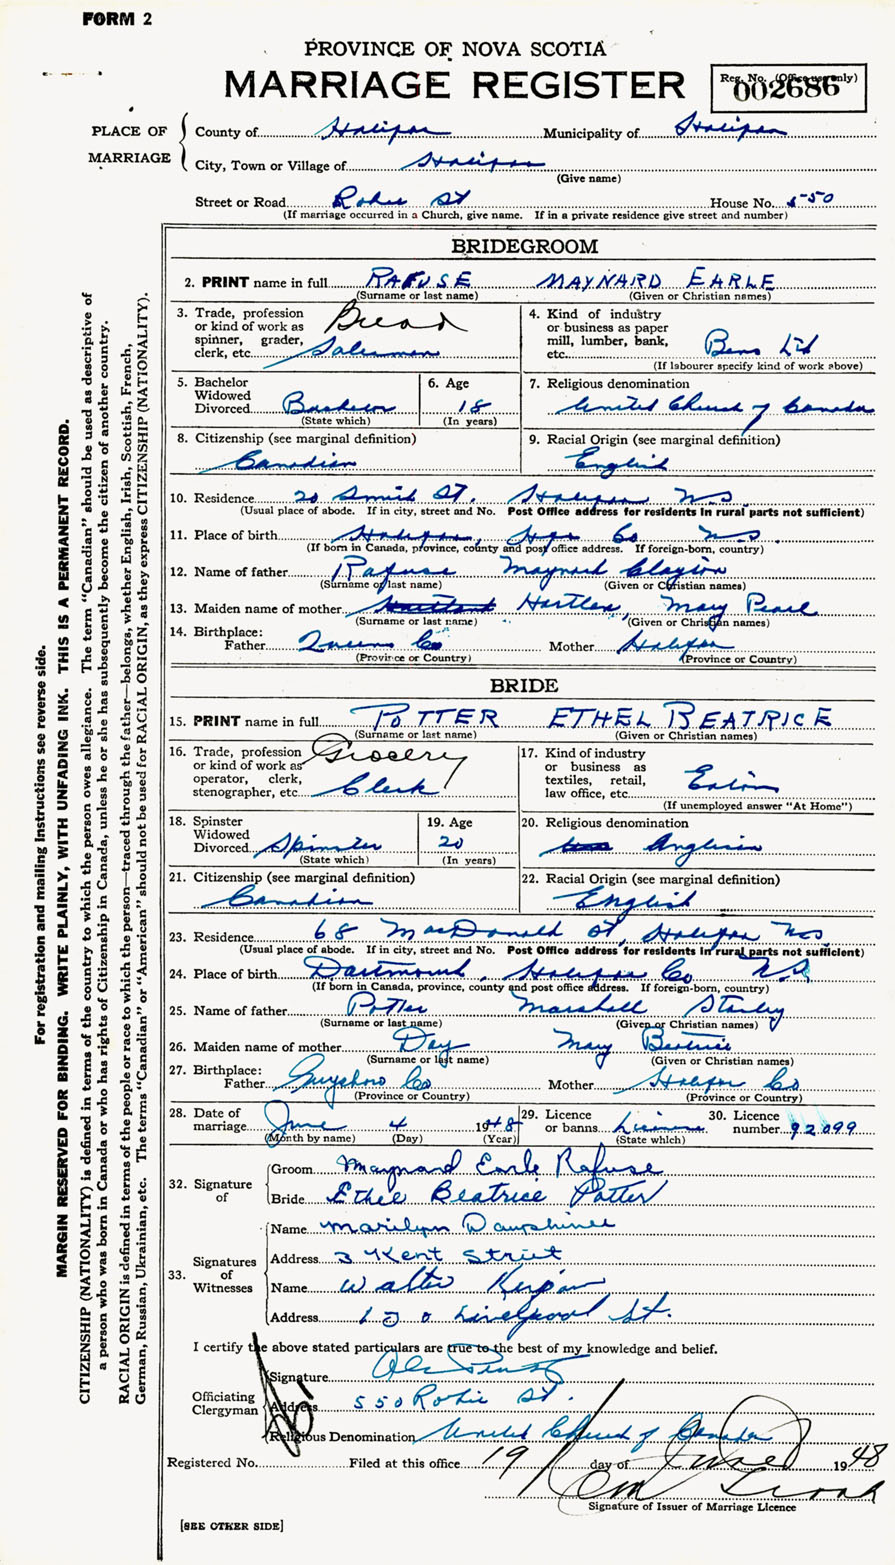 FORM 2
PROVINCE OF NOVA SCOTIA
MARRIAGE REGISTER
Reg. No. (Office use only)
002686
PLACE OF MARRIAGE
County of Halifax Municipality of Halifax
City, Town or Village of Halifax
(Give name)
Street or Road Robie St House No. 550
(If marriage occurred in a Church, give name. If in a private residence give street and number)
BRIDEGROOM
2. PRINT name in full RAFUSE MAYNARD EARLE
(Surname or last name) (Given or Christian names)
3. Trade, profession or kind of work as spinner, grader, clerk, etc. Bread Salesman
4. Kind of industry or business as paper mill, lumber, bank, etc. Bens Ltd
(If labourer specify kind of work above)
5. Bachelor Widowed Divorced Bachelor
(State which)
6. Age 18
(In years)
7. Religious denomination United Church of Canada
8. Citizenship (see marginal definition) Canadian
9. Racial Origin (see marginal definition) English
10. Residence 20 St. Halifax N.S.
(Usual place of abode. If in city, street and No. Post Office address for residents in rural parts not sufficient)
11. Place of birth Halifax, Hfx Co N.S.
(If born in Canada, province, county and post office address. If foreign-born, country)
12. Name of father Rafuse Maynard Clayton
(Surname or last name) (Given or Christian names)
13. Maiden name of mother Hartlen, Mary Pearl
(Surname or last name) (Given or Christian names)
14. Birthplace:
Father Queens Co Mother Halifax
(Province or Country) (Province or Country)
BRIDE
15. PRINT name in full POTTER ETHEL BEATRICE
(Surname or last name) (Given or Christian names)
16. Trade, profession or kind of work as operator, clerk, stenographer, etc. Grocery Clerk
17. Kind of industry or business as textiles, retail, law office, etc. Eaton
(If unemployed answer "At Home")
18. Spinster Widowed Divorced Spinster
(State which)
19. Age 20
(In years)
20. Religious denomination Anglican
21. Citizenship (see marginal definition) Canadian
22. Racial Origin (see marginal definition) English
23. Residence 68 MacDonald St, Halifax N.S
(Usual place of abode. If in city, street and No. Post Office address for residents in rural parts not sufficient)
24. Place of birth Dartmouth, Halifax Co N.S.
(If born in Canada, province, county and post office address. If foreign-born, country)
25. Name of father Potter Marshall Stanley
(Surname or last name) (Given or Christian names)
26. Maiden name of mother Day Mary Beatrice
(Surname or last name) (Given or Christian names)
27. Birthplace:
Father Guysboro Co Mother Halifax Co
(Province or Country) (Province or Country)
28. Date of marriage June 4 1948
(Month by name) (Day) (Year)
29. Licence or banns License
(State which)
30. Licence number 92099
32. Signature of
Groom Maynard Earle Rafuse
Bride Ethel Beatrice Potter
33. Signatures of Witnesses
Name Marilyn Dauphinee
Address 3 Kent Street
Name Walter
Address Liverpool St.
I certify the above stated particulars are true to the best of my knowledge and belief.
Officiating Clergyman
Signature
Address 550 Robie St.
Religious Denomination United Church of Canada
Registered No. Filed at this office 19 day of June 1948
Signature of Issuer of Marriage Licence
[SEE OTHER SIDE]
For registration and mailing instructions see reverse side.
MARGIN RESERVED FOR BINDING. WRITE PLAINLY, WITH UNFADING INK. THIS IS A PERMANENT RECORD.
CITIZENSHIP (NATIONALITY) is defined in terms of the country to which the person owes allegiance. The term "Canadian" should be used as descriptive of
a person who was born in Canada or who has rights of Citizenship in Canada, unless he or she has subsequently become the citizen of another country.
RACIAL ORIGIN is defined in terms of the people or race to which the person—traced through the father—belongs, whether English, Irish, Scottish, French,
German, Russian, Ukrainian, etc. The terms "Canadian" or "American" should not be used for RACIAL ORIGIN, as they express CITIZENSHIP (NATIONALITY).